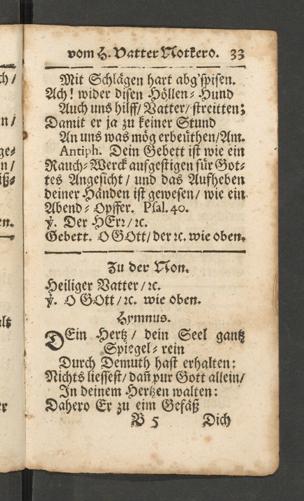 vom H. Vatter Notkero. 33
Mit Schlägen hart abg'spisen.
Ach! wider disen Höllen-Hund
Auch uns hilff/ Vatter/ streitten;
Damit er ja zu keiner Stund
An uns was mög erbeüthen/ Am.
Antiph. Dein Gebett ist wie ein
Rauch-Werck aufgestigen für Got-
tes Angesicht/ und das Aufheben
deiner Händen ist gewesen/ wie ein
Abend-Opffer. Psal. 40.
℣. Der HErr/ ꝛc.
Gebett. O GOtt/ der ꝛc. wie oben.
Zu der Non.
Heiliger Vatter/ ꝛc.
℣. O GOtt/ ꝛc. wie oben.
Hymnus.
DEin Hertz/ dein Seel gantz
Spiegel-rein
Durch Demuth hast erhalten:
Nichts liessest/ dañ pur Gott allein/
In deinem Hertzen walten:
Dahero Er zu eim Gefäß
B 5 Dich